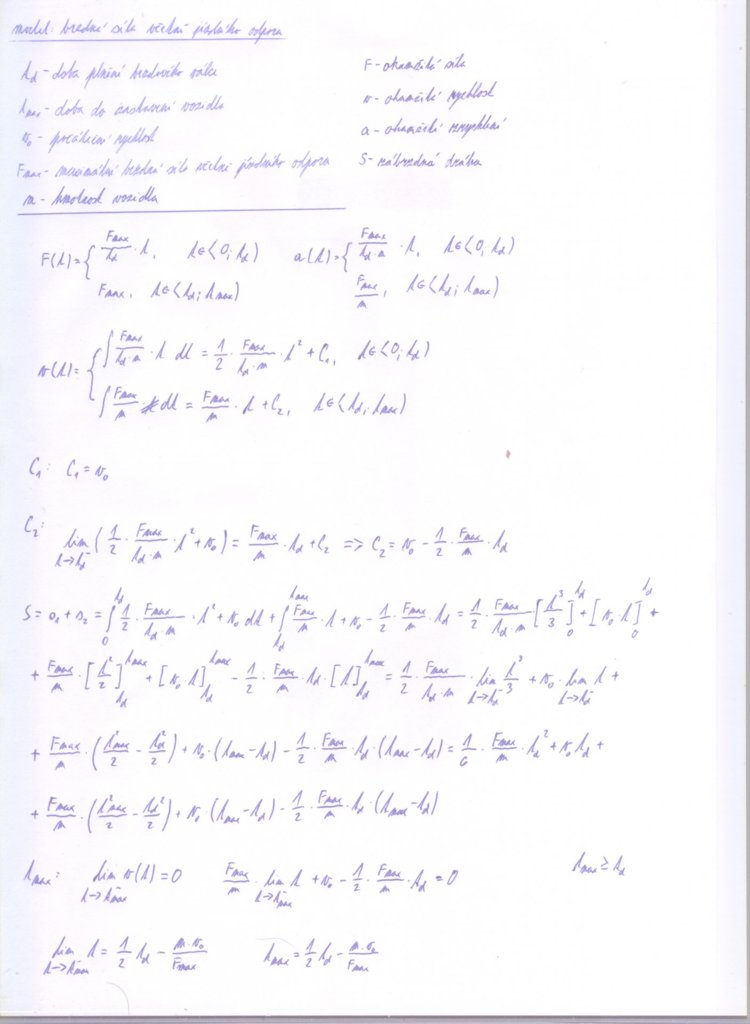 model: brzdná síla včetně jízdního odporu
t_d - doba plnění brzdového válce
t_max - doba do zastavení vozidla
v_0 - počáteční rychlost
F_max - maximální brzdná síla včetně jízdního odporu
m - hmotnost vozidla
F - okamžitá síla
v - okamžitá rychlost
a - okamžité zrychlení
S - zábrzdná dráha
F(t) = { F_max/t_d · t, t∈⟨0; t_d)   a(t) = { F_max/(t_d·m) · t, t∈⟨0; t_d)
F_max, t∈⟨t_d; t_max)   F_max/m, t∈⟨t_d; t_max)
v(t) = { ∫ F_max/(t_d·m) · t dt = 1/2 · F_max/(t_d·m) · t² + C_1, t∈⟨0; t_d)
∫ F_max/m · dt = F_max/m · t + C_2, t∈⟨t_d; t_max)
C_1: C_1 = v_0
C_2: lim_{t→t_d⁻} (1/2 · F_max/(t_d·m) · t² + v_0) = F_max/m · t_d + C_2 => C_2 = v_0 - 1/2 · F_max/m · t_d
S = s_1 + s_2 = ∫_0^{t_d} 1/2 · F_max/(t_d·m) · t² + v_0 dt + ∫_{t_d}^{t_max} F_max/m · t + v_0 - 1/2 · F_max/m · t_d = 1/2 · F_max/(t_d·m) [t³/3]_0^{t_d} + [v_0 · t]_0^{t_d} +
+ F_max/m · [t²/2]_{t_d}^{t_max} + [v_0 · t]_{t_d}^{t_max} - 1/2 · F_max/m · t_d · [t]_{t_d}^{t_max} = 1/2 · F_max/(t_d·m) · lim_{t→t_d⁻} t³/3 + v_0 · lim_{t→t_d⁻} t +
+ F_max/m · (t²_max/2 - t_d²/2) + v_0 · (t_max - t_d) - 1/2 · F_max/m · t_d · (t_max - t_d) = 1/6 · F_max/m · t_d² + v_0 t_d +
+ F_max/m · (t²_max/2 - t_d²/2) + v_0 (t_max - t_d) - 1/2 · F_max/m · t_d · (t_max - t_d)
t_max: lim_{t→t_max⁻} v(t) = 0   F_max/m · lim_{t→t_max⁻} t + v_0 - 1/2 · F_max/m · t_d = 0   t_max ≥ t_d
lim_{t→t_max⁻} t = 1/2 t_d - m·v_0/F_max   t_max = 1/2 t_d - m·v_0/F_max